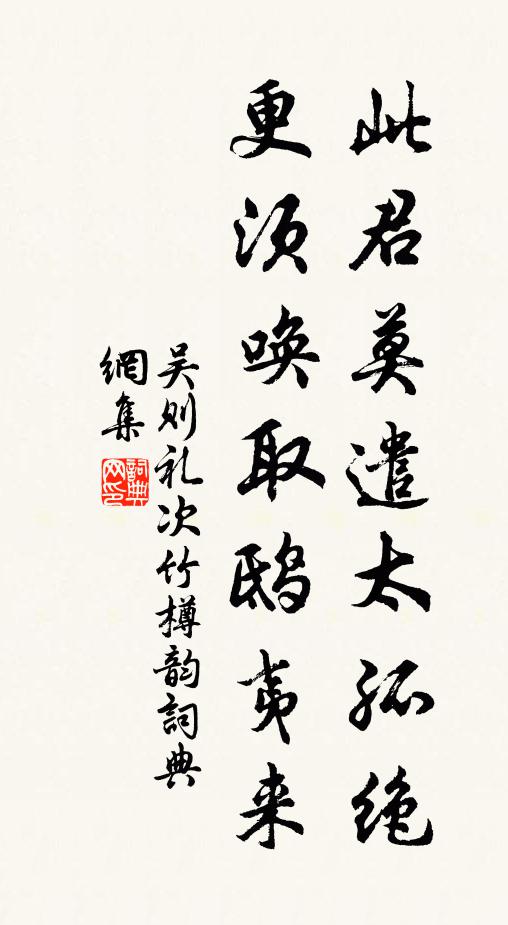 此君莫遣太孤绝
更须唤取鸱夷来
吴则礼次竹樽韵詞典
網集
詞典网印